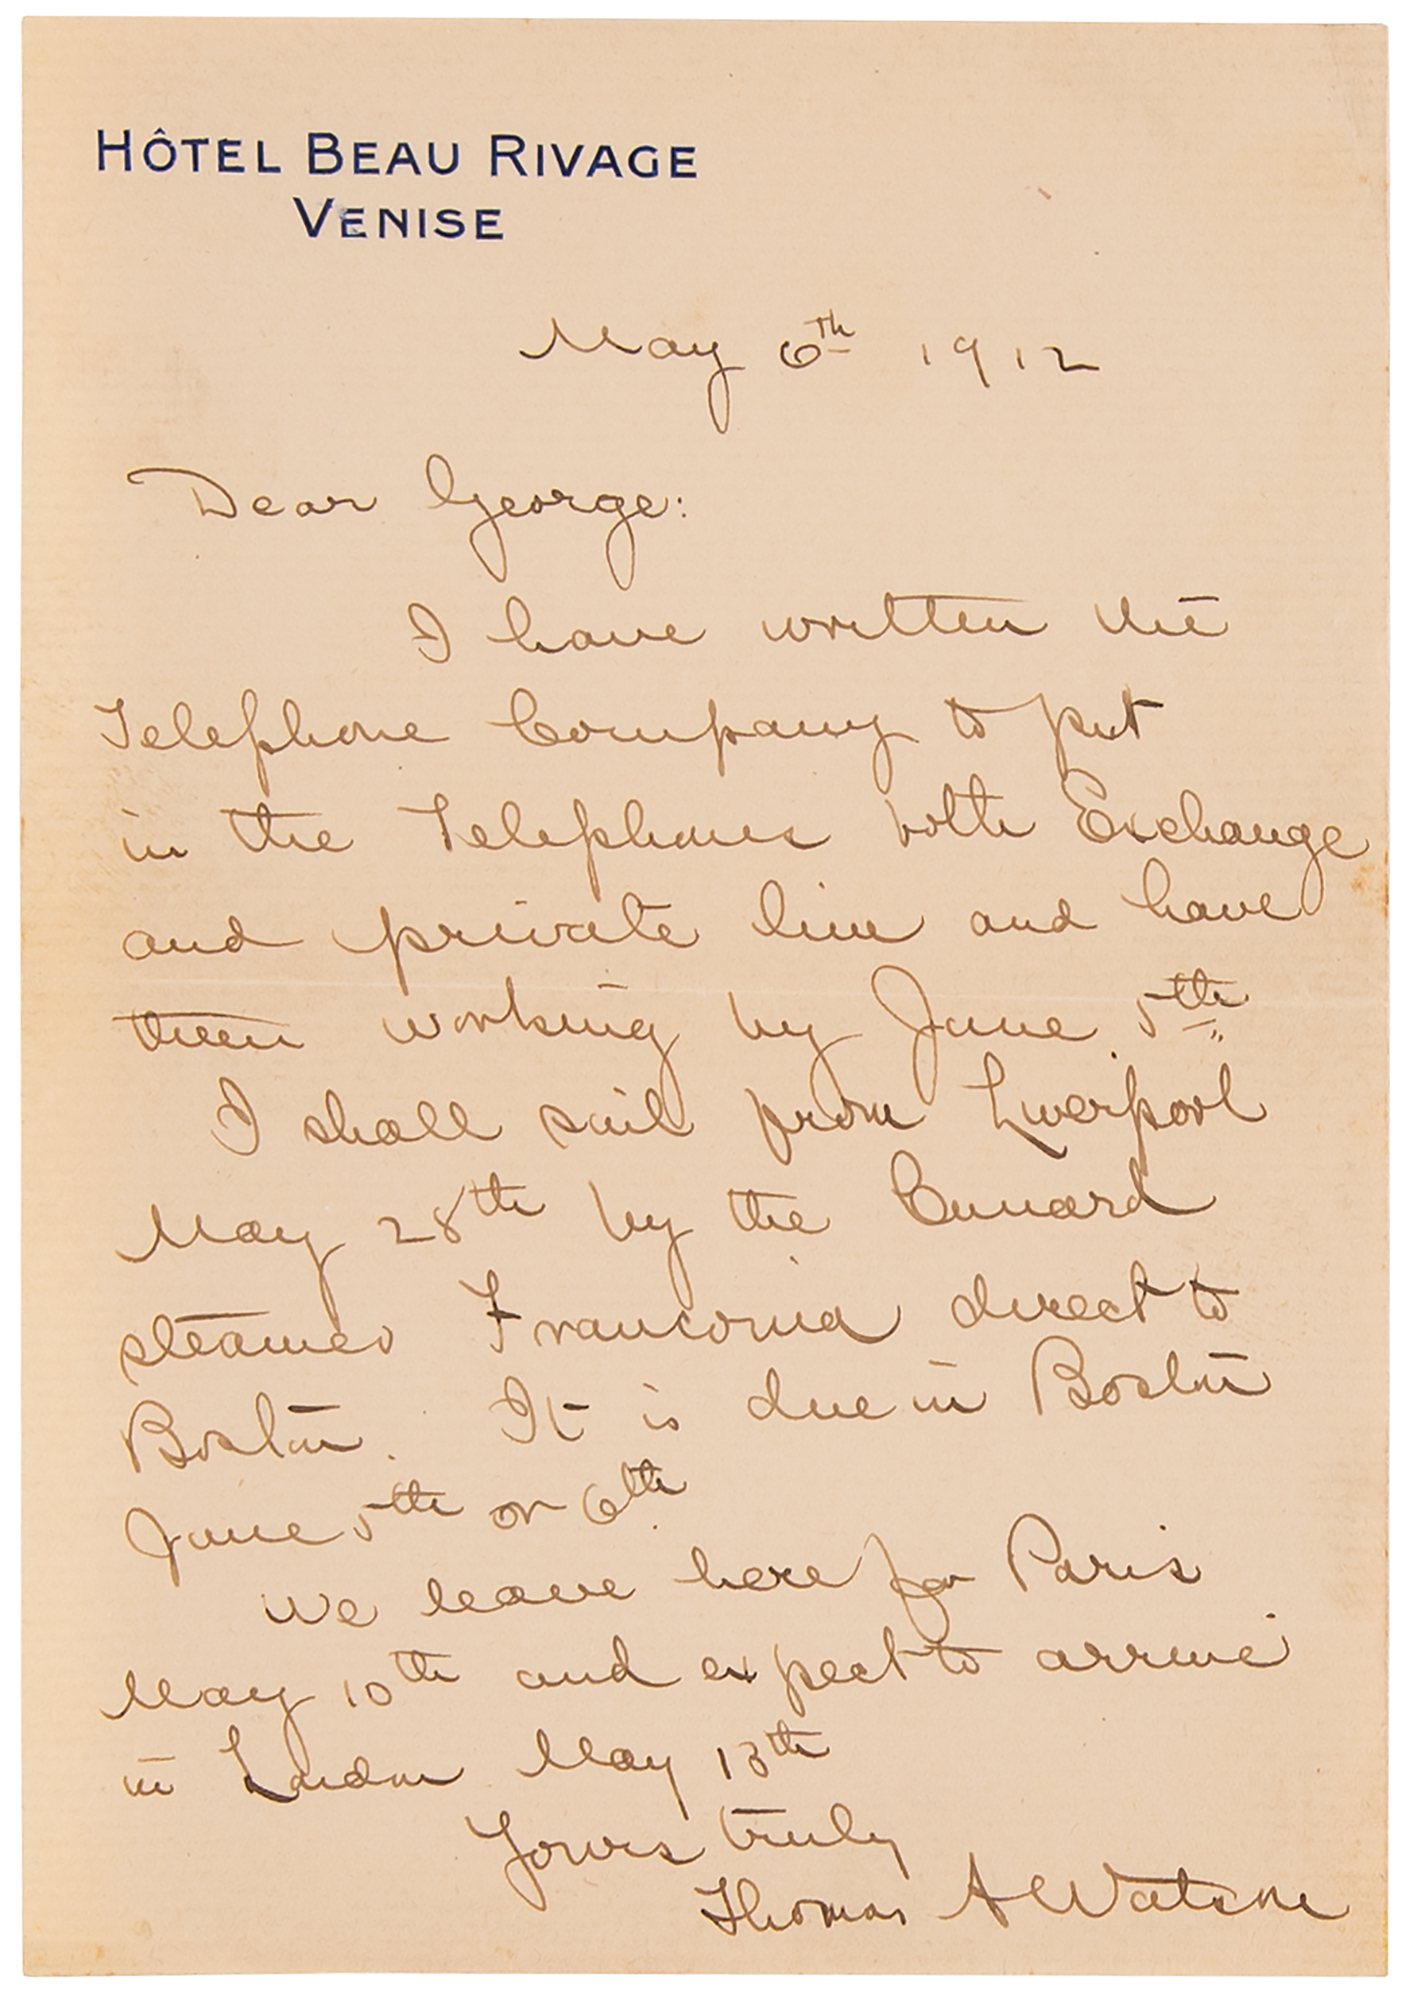 HÔTEL BEAU RIVAGE
VENISE
May 6th 1912
Dear George:
I have written the
Telephone Company to put
in the Telephones both Exchange
and private line and have
them working by June 5th.
I shall sail from Liverpool
May 28th by the Cunard
steamer Franconia direct to
Boston. It is due in Boston
June 5th or 6th.
We leave here for Paris
May 10th and expect to arrive
in London May 13th
Yours truly
Thomas A Watson